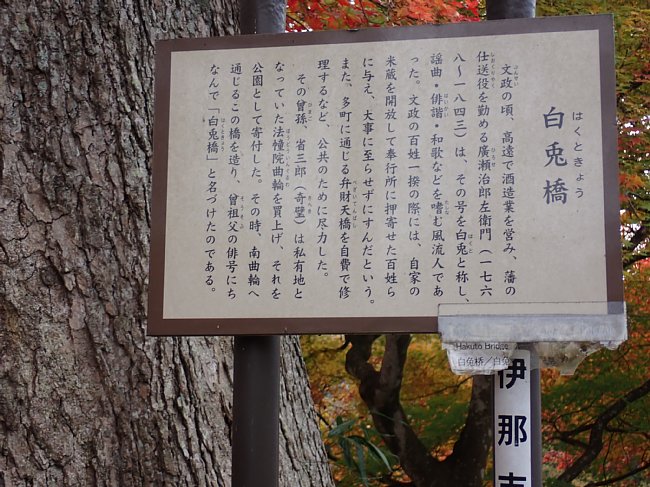 白兎橋
はくときょう
文政の頃、高遠で酒造業を営み、藩の
仕送役を勤める廣瀬治郎左衛門（一七六
八～一八四三）は、その号を白兎と称し、
謡曲・俳諧・和歌などを嗜む風流人であ
った。文政の百姓一揆の際には、自家の
米蔵を開放して奉行所に押寄せた百姓ら
に与え、大事に至らせずにすんだという。
また、多町に通じる弁財天橋を自費で修
理するなど、公共のために尽力した。
その曽孫、省三郎（奇壁）は私有地と
なっていた法幢院曲輪を買上げ、それを
公園として寄付した。その時、南曲輪へ
通じるこの橋を造り、曽祖父の俳号にち
なんで「白兎橋」と名づけたのである。
Hakuto Bridge
白兔桥／白兔
伊那市